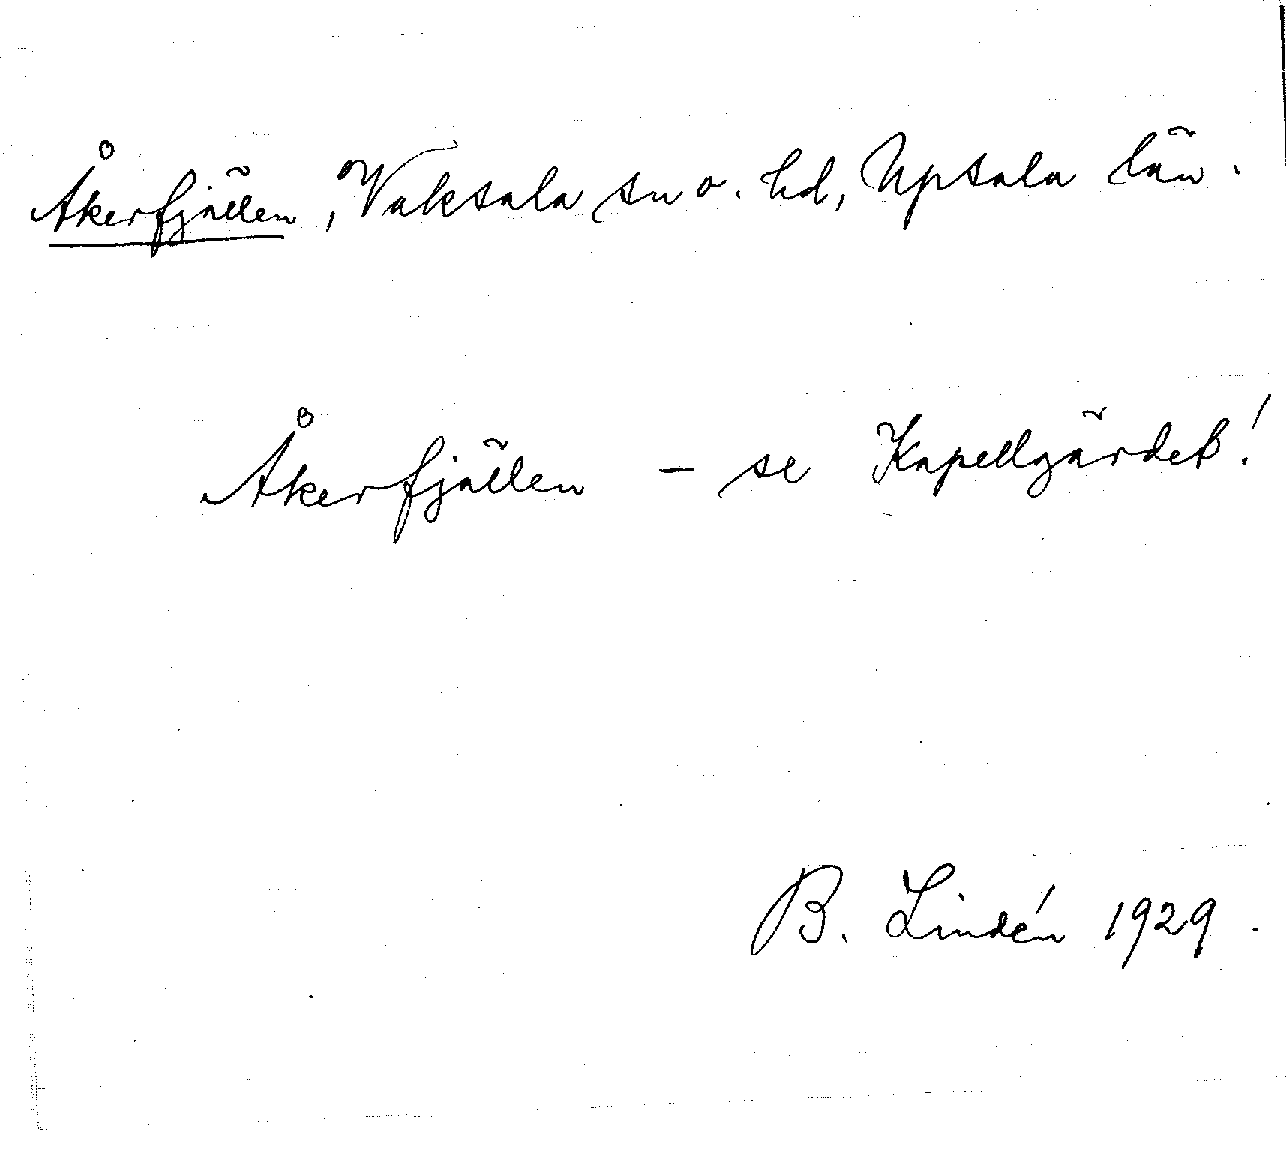 Åkerfjällen, Vaksala sn o. hd, Upsala län.
Åkerfjällen – se Kapellgärdet!
B. Lindén 1929.